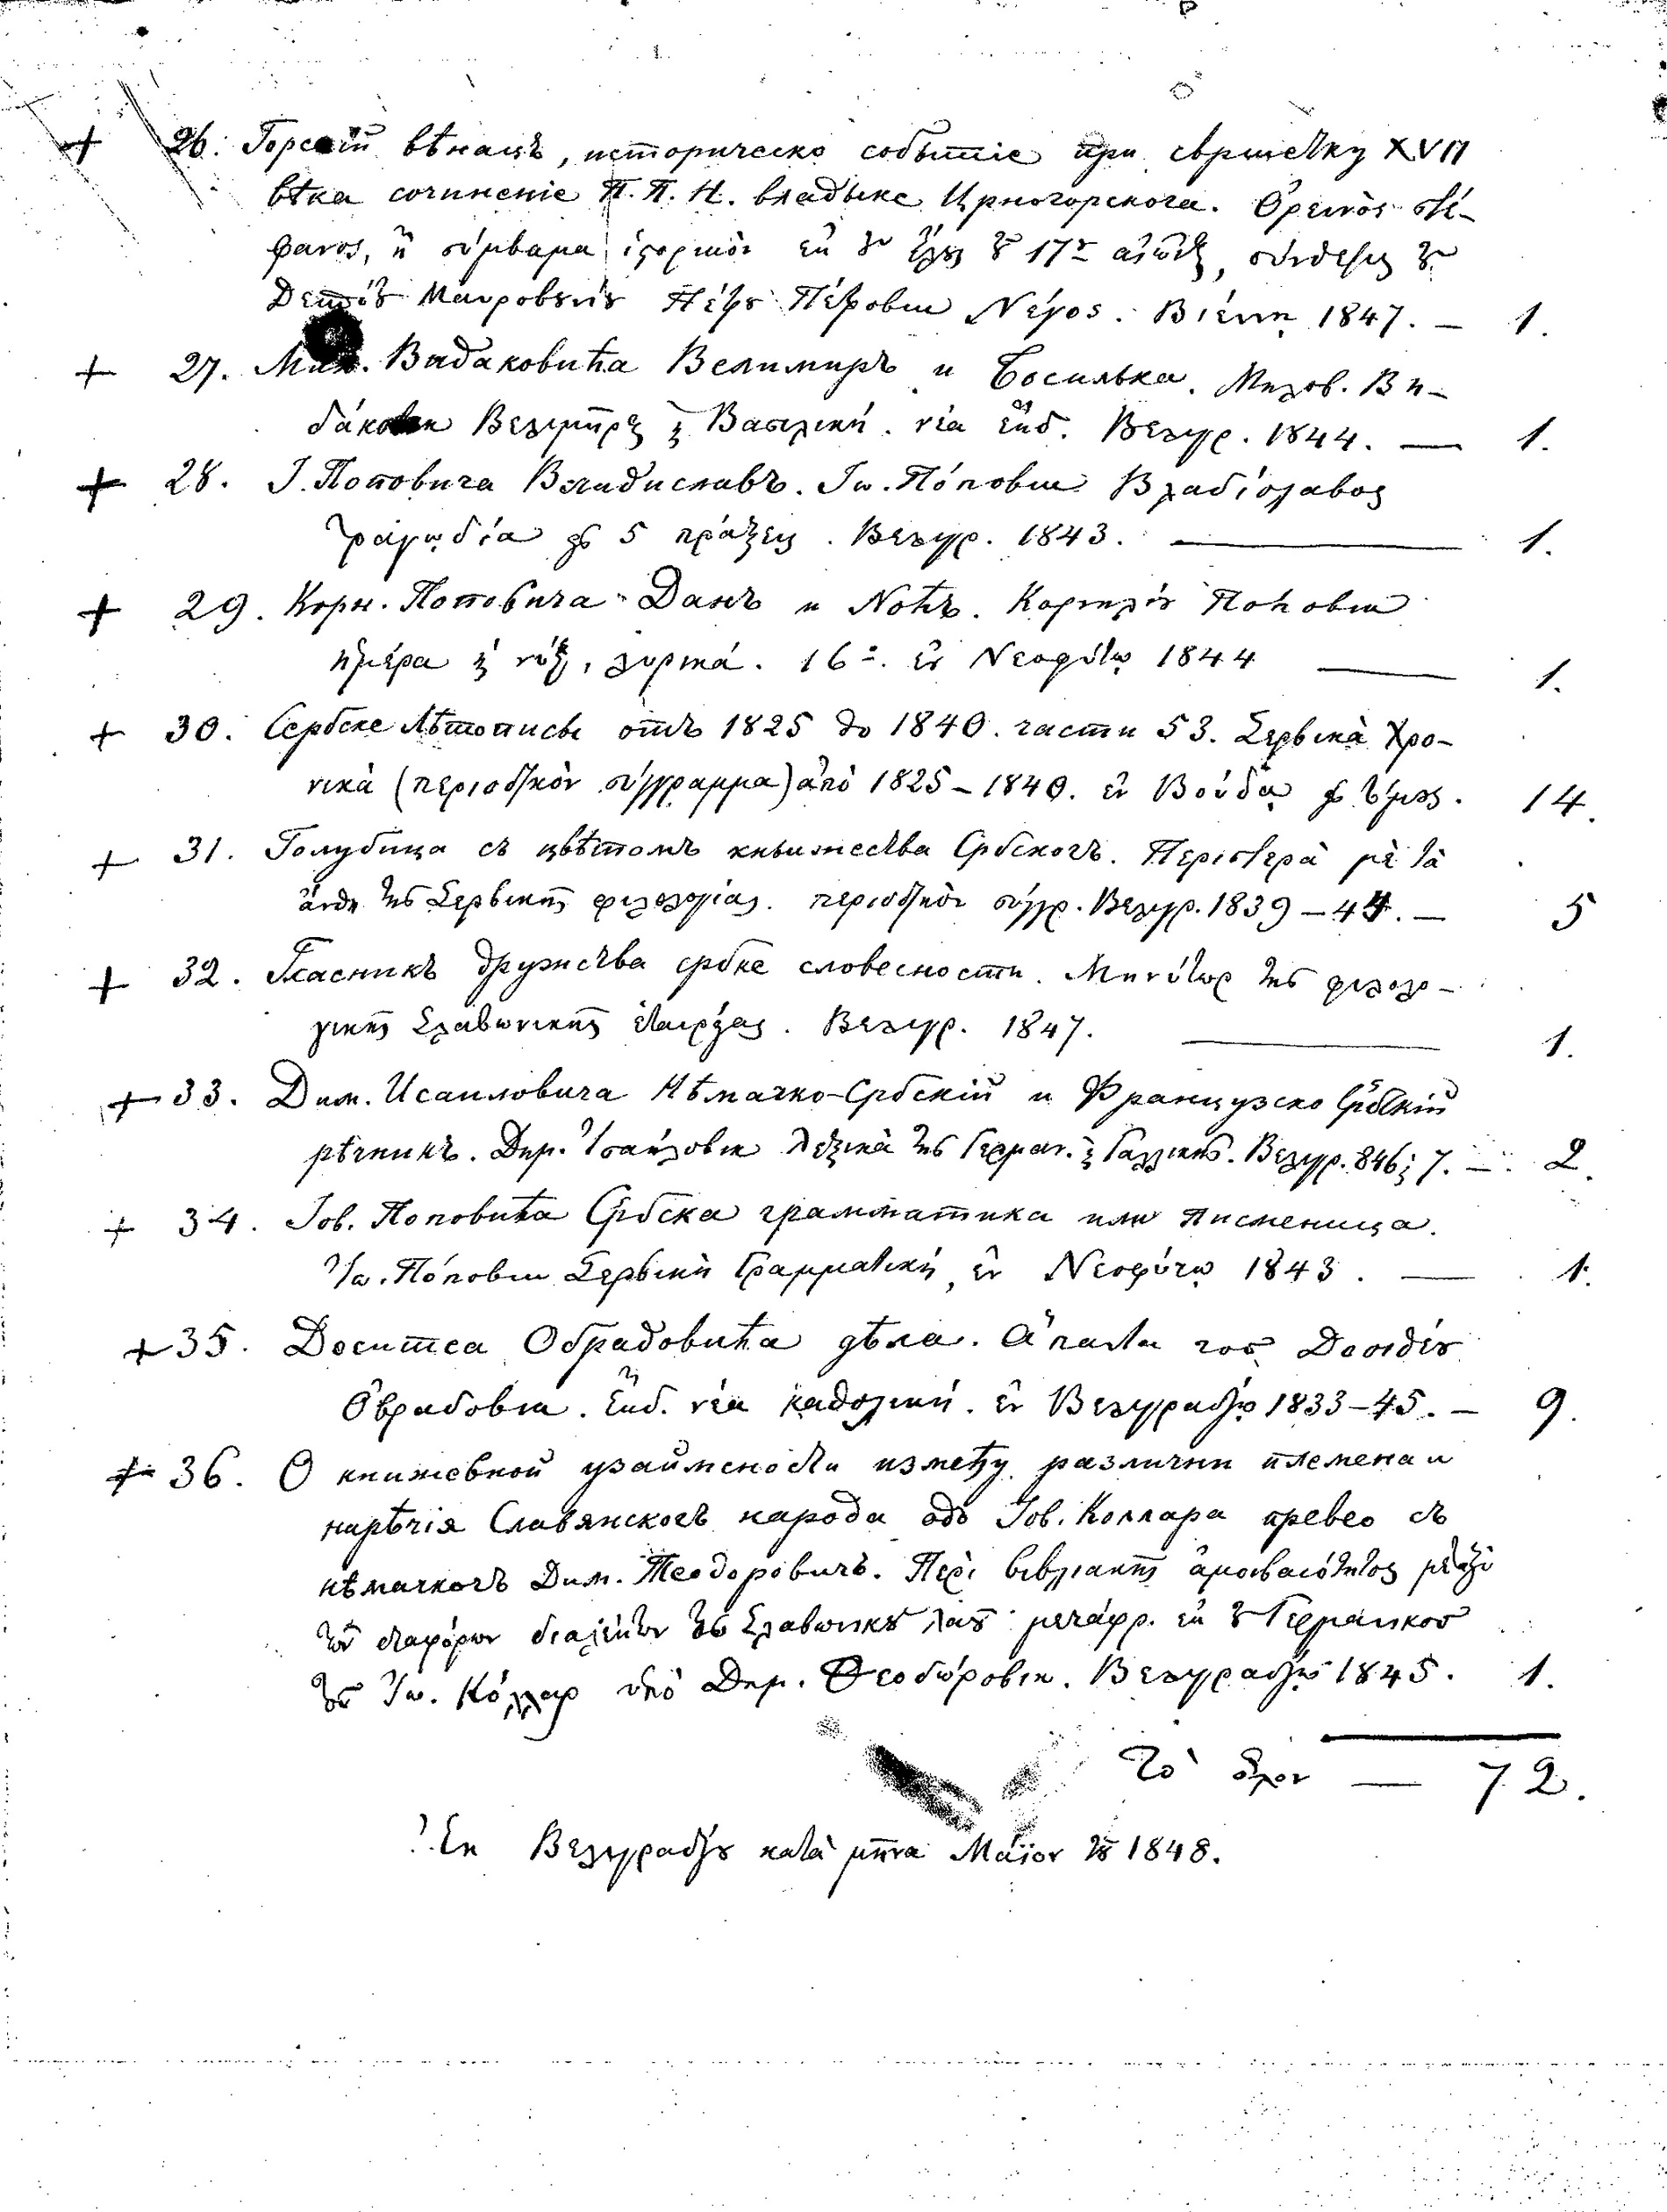 + 26. Горскій вѣнацъ, историческо событіе при свршетку XVII
вѣка сочиненіе П. П. Н. владыке Црногорскога. Ὀρεινὸς στέ-
φανος, ἢ σύμβαμα ἱστορικὸν ἐκ τοῦ τέλους τοῦ 17ου αἰῶνος, σύνθεσις τοῦ
Δεσπότου Μαυροβουνίου Πέτρου Πέτροβικ Νέγος. Βιέννη 1847. — 1.
+ 27. Мил. Видаковића Велимиръ и Босилька. Μιλοβ. Βι-
δάκοβικ Βελιμῆρος καὶ Βασιλική. νέα ἔκδ. Βελιγρ. 1844. — 1.
+ 28. І. Поповича Владиславъ. Ἰω. Πόποβικ Βλαδίσλαβος
τραγῳδία εἰς 5 πράξεις. Βελιγρ. 1843. — 1.
+ 29. Корн. Поповича Данъ и Ноћъ. Κορνηλίου Πόποβικ
ἡμέρα καὶ νύξ, λυρικά. 16ο. ἐν Νεοφύτῳ 1844 — 1.
+ 30. Сербске Лѣтописы отъ 1825 до 1840. части 53. Σερβικὰ Χρο-
νικὰ (περιοδικὸν σύγγραμμα) ἀπὸ 1825 – 1840. ἐν Βούδᾳ εἰς τόμους. 14.
+ 31. Голубица съ цвѣтомъ књижества Србскогъ. Περιστερὰ μὲ τὰ
ἄνθη τῆς Σερβικῆς φιλολογίας. περιοδικὸν σύγγρ. Βελιγρ. 1839 – 44. — 5
+ 32. Гласникъ дружства србке словесности. Μηνύτωρ τῆς φιλολο-
γικῆς Σλαβωνικῆς ἑταιρείας. Βελιγρ. 1847. — 1.
+ 33. Дим. Исаиловича Нѣмачко-Србскій и Французско Србскій
рѣчникъ. Δημ. Ἰσαήλοβικ Λεξικὰ τῆς Γερμαν. καὶ Γαλλικῆς. Βελιγρ. 846 καὶ 7. — 2.
+ 34. Јов. Поповића Србска грамматика или писменица.
Ἰω. Πόποβικ Σερβικὴ Γραμματική, ἐν Νεοφύτῳ 1843. — 1.
+ 35. Доситеа Обрадовића дѣла. Ἅπαντα τοῦ Δοσιθέου
Ὀβραδοβικ. Ἔκδ. νέα καθολική. ἐν Βελιγραδίῳ 1833–45. — 9.
+ 36. О книжевной узаймености између различни племена и
нарѣчія Славянскогъ народа одъ Јов. Коллара превео съ
нѣмачкогъ Дим. Теодоровичъ. Περὶ βιβλιακῆς ἀμοιβαιότητος μεταξὺ
τῶν διαφόρων διαλέκτων τοῦ Σλαβωνικοῦ λαοῦ μετάφρ. ἐκ τοῦ Γερμανικοῦ
τοῦ Ἰω. Κόλλαρ ὑπὸ Δημ. Θεοδώροβικ. Βελιγραδίῳ 1845. 1.
Τὸ ὅλον — 72.
Ἐκ Βελιγραδίου κατὰ μῆνα Μάϊον τοῦ 1848.